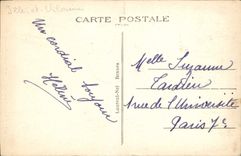 Ille-et-Vilaine
CARTE POSTALE
Un cordial bonjour
Hélène
Laurent-Nel Rennes
Melle Suzanne
Tardieu
1 rue de l'Université
Paris 7e